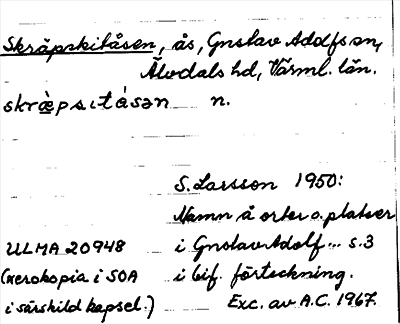 Skräpskitåsen, ås, Gustav Adolfs sn,
Älvdals hd, Värml. län.
skræ̀psɩtåsən n.
S. Larsson 1950:
Namn å orter o. platser
ULMA 20948 i Gustav Adolf... s. 3
(xerokopia i SOA i bif. förteckning.
i särskild kapsel.) Exc. av A.C. 1967.